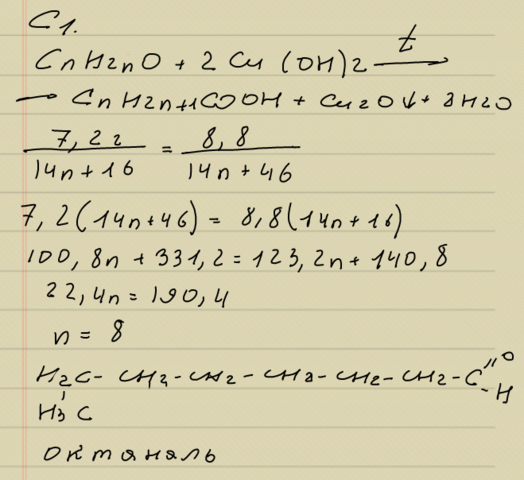 С1.
CnH2nO + 2 Cu (OH)2 t⟶
⟶ CnH2n+1COOH + Cu2O↓ + 3H2O
7,2г / 14n + 16 = 8,8 / 14n + 46
7,2(14n+46) = 8,8(14n+16)
100,8n + 331,2 = 123,2n + 140,8
22,4n = 190,4
n = 8
H2C - CH2 - CH2 - CH2 - CH2 - CH2 - C =O -H
H3C
октаналь